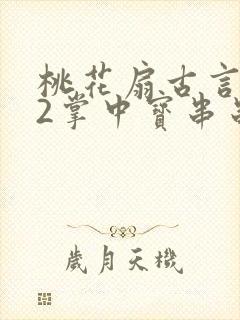 桃花扇古言
2掌中寳串
歲月天機